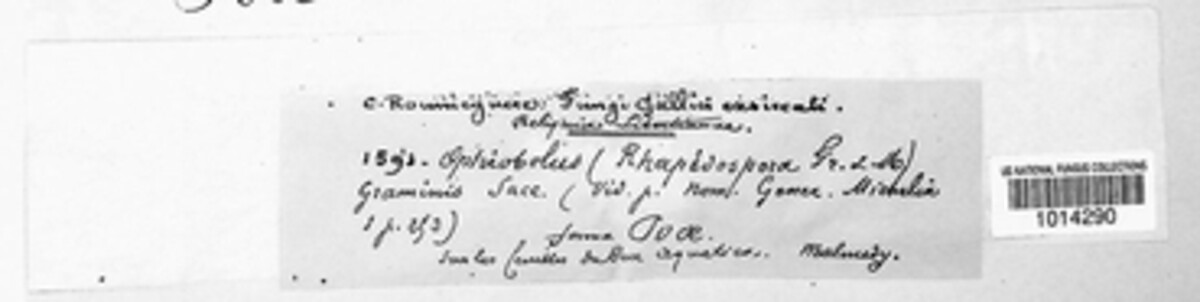 C. Roumeguere. Fungi Gallici exsiccati.
1891. Ophiobolus (Rhaphidospora Fr. & M)
Graminis Sacc. (Vid. p. nom. Gener. Michelia
1 p. 253)
forma Poae.
Sur les feuilles du Poa aquatica. Malmedy.
US NATIONAL FUNGUS COLLECTIONS
1014290